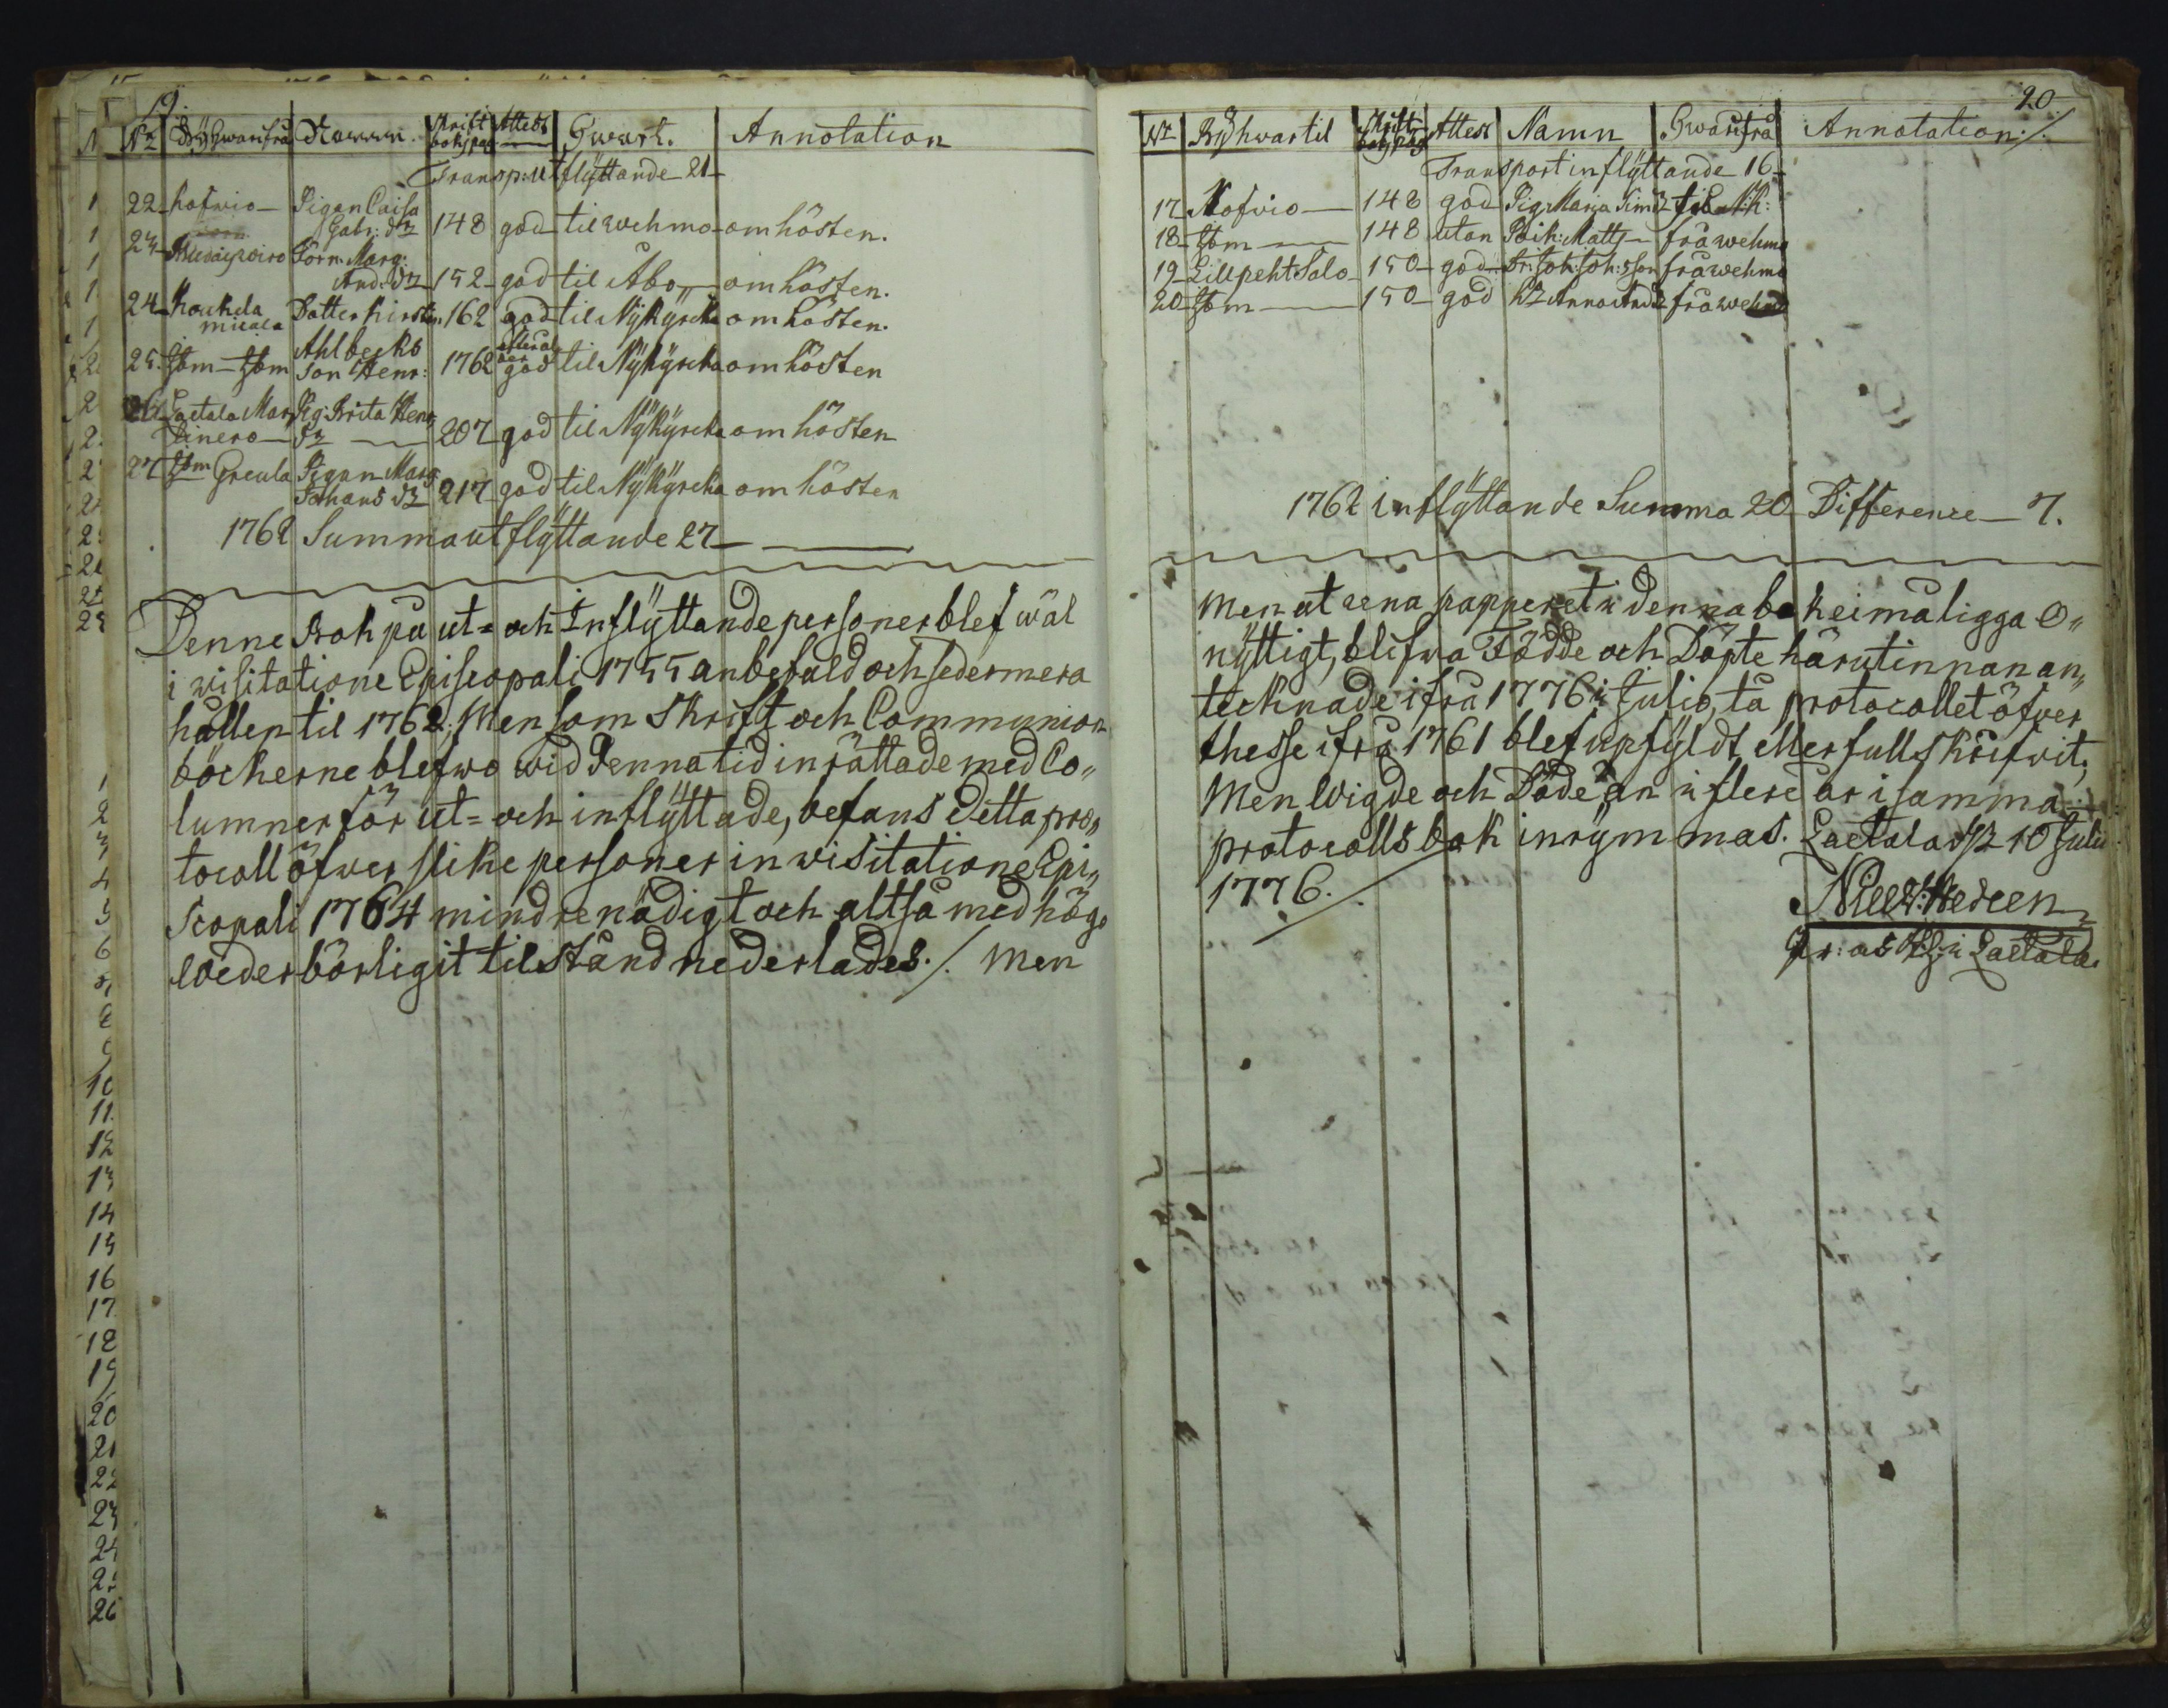 19.
No Bÿ hwarifrå Namn. Skrift boks pag. Attest Hwart. Annotation
Transp: utflÿttande 21
22 hofvio Pigan Caisa
Gabr: dr 148 god til wehmo om hösten.
23 Torn. Marg:
And: dr 152 god til Åbo om hösten.
24 Koukela Dotter Kirstin 162 god til Nÿkÿrcka om hösten.
micala
25. Ibm Ibm Ahlbecks
Son Henr: 1762 god til Nÿkÿrcka om hösten
26 Laetala Mar Pig: Brita Henr
tinero dr 207 god til Nÿkÿrcka om hösten
27 Ibm Greula Pigan Marg
Johans dr 217 god til Nÿkÿrcka om hösten
1762 Summa utflÿttande 27
Denne Bok på ut= och Inflÿttande personer blef wäl
i visitatione Episcopali 1755 anbefald och sedermera
hållen til 1762; Men som Skrift och Communion
böckerne blefwo wid denna tid inrättade med Co„
lumner för ut= och inflÿttade, befans detta pro„
tocoll öfwer slike personer in visitatione Epi„
scopali 1764 mindre nödigt och altså med hög„
wederbörligit tilstånd nederlades./. Men
20.
No Bÿ hwartil Skrift boks pag Attest Namn Hwarifrå Annotation./.
Transport inflÿttande 16
17 Nofvio 148 god Pig: Maria Sim: dr
18 Ibm 148 utan Poik: Matts frå wehmo
19 Lillpeht Salo 150 god Dr: Joh: Joh: sson frå wehmo
20 Ibm 150 god Anna And: dr frå wehmo
1762 inflÿttande Summa 20 Difference 7.
Men at rena papperet i denna bok ei må ligga o„
nÿttigt, blifwa Födde och Döpte härutinnan an„
tecknade ifrå 1776 i Julio, tå protocollet öfver
thesse ifrå 1761 blef upfÿldt eller fullskrifvit;
Men Wigde och Döde än i flere år i samma
protocolls bok inrÿmmas. Laetala d. 10 Julii
1776.
Hedeen
i Laetala.